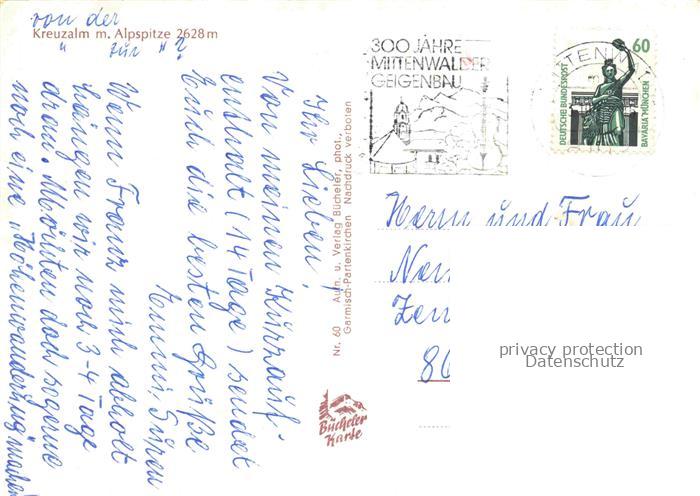 von der
Kreuzalm m. Alpspitze 2628 m
" zur " ?
Ihr Lieben!
Von meinen Kurzauf-
enthalt (14 Tage) sendet
Euch die besten Grüße
Emmi, Euren
Wenn Franz mich abholt
hängen wir noch 3-4 Tage
dran. Möchten doch so gerne
noch eine "Höhenwanderung" machen
Nr. 60 Aufn. u. Verlag Bücheler, phot.,
Garmisch-Partenkirchen Nachdruck verboten
Bücheler
Karte
300 JAHRE
MITTENWALDER
GEIGENBAU
MITTENW
60
DEUTSCHE BUNDESPOST
BAVARIA MÜNCHEN
Herrn und Frau
privacy protection
Datenschutz